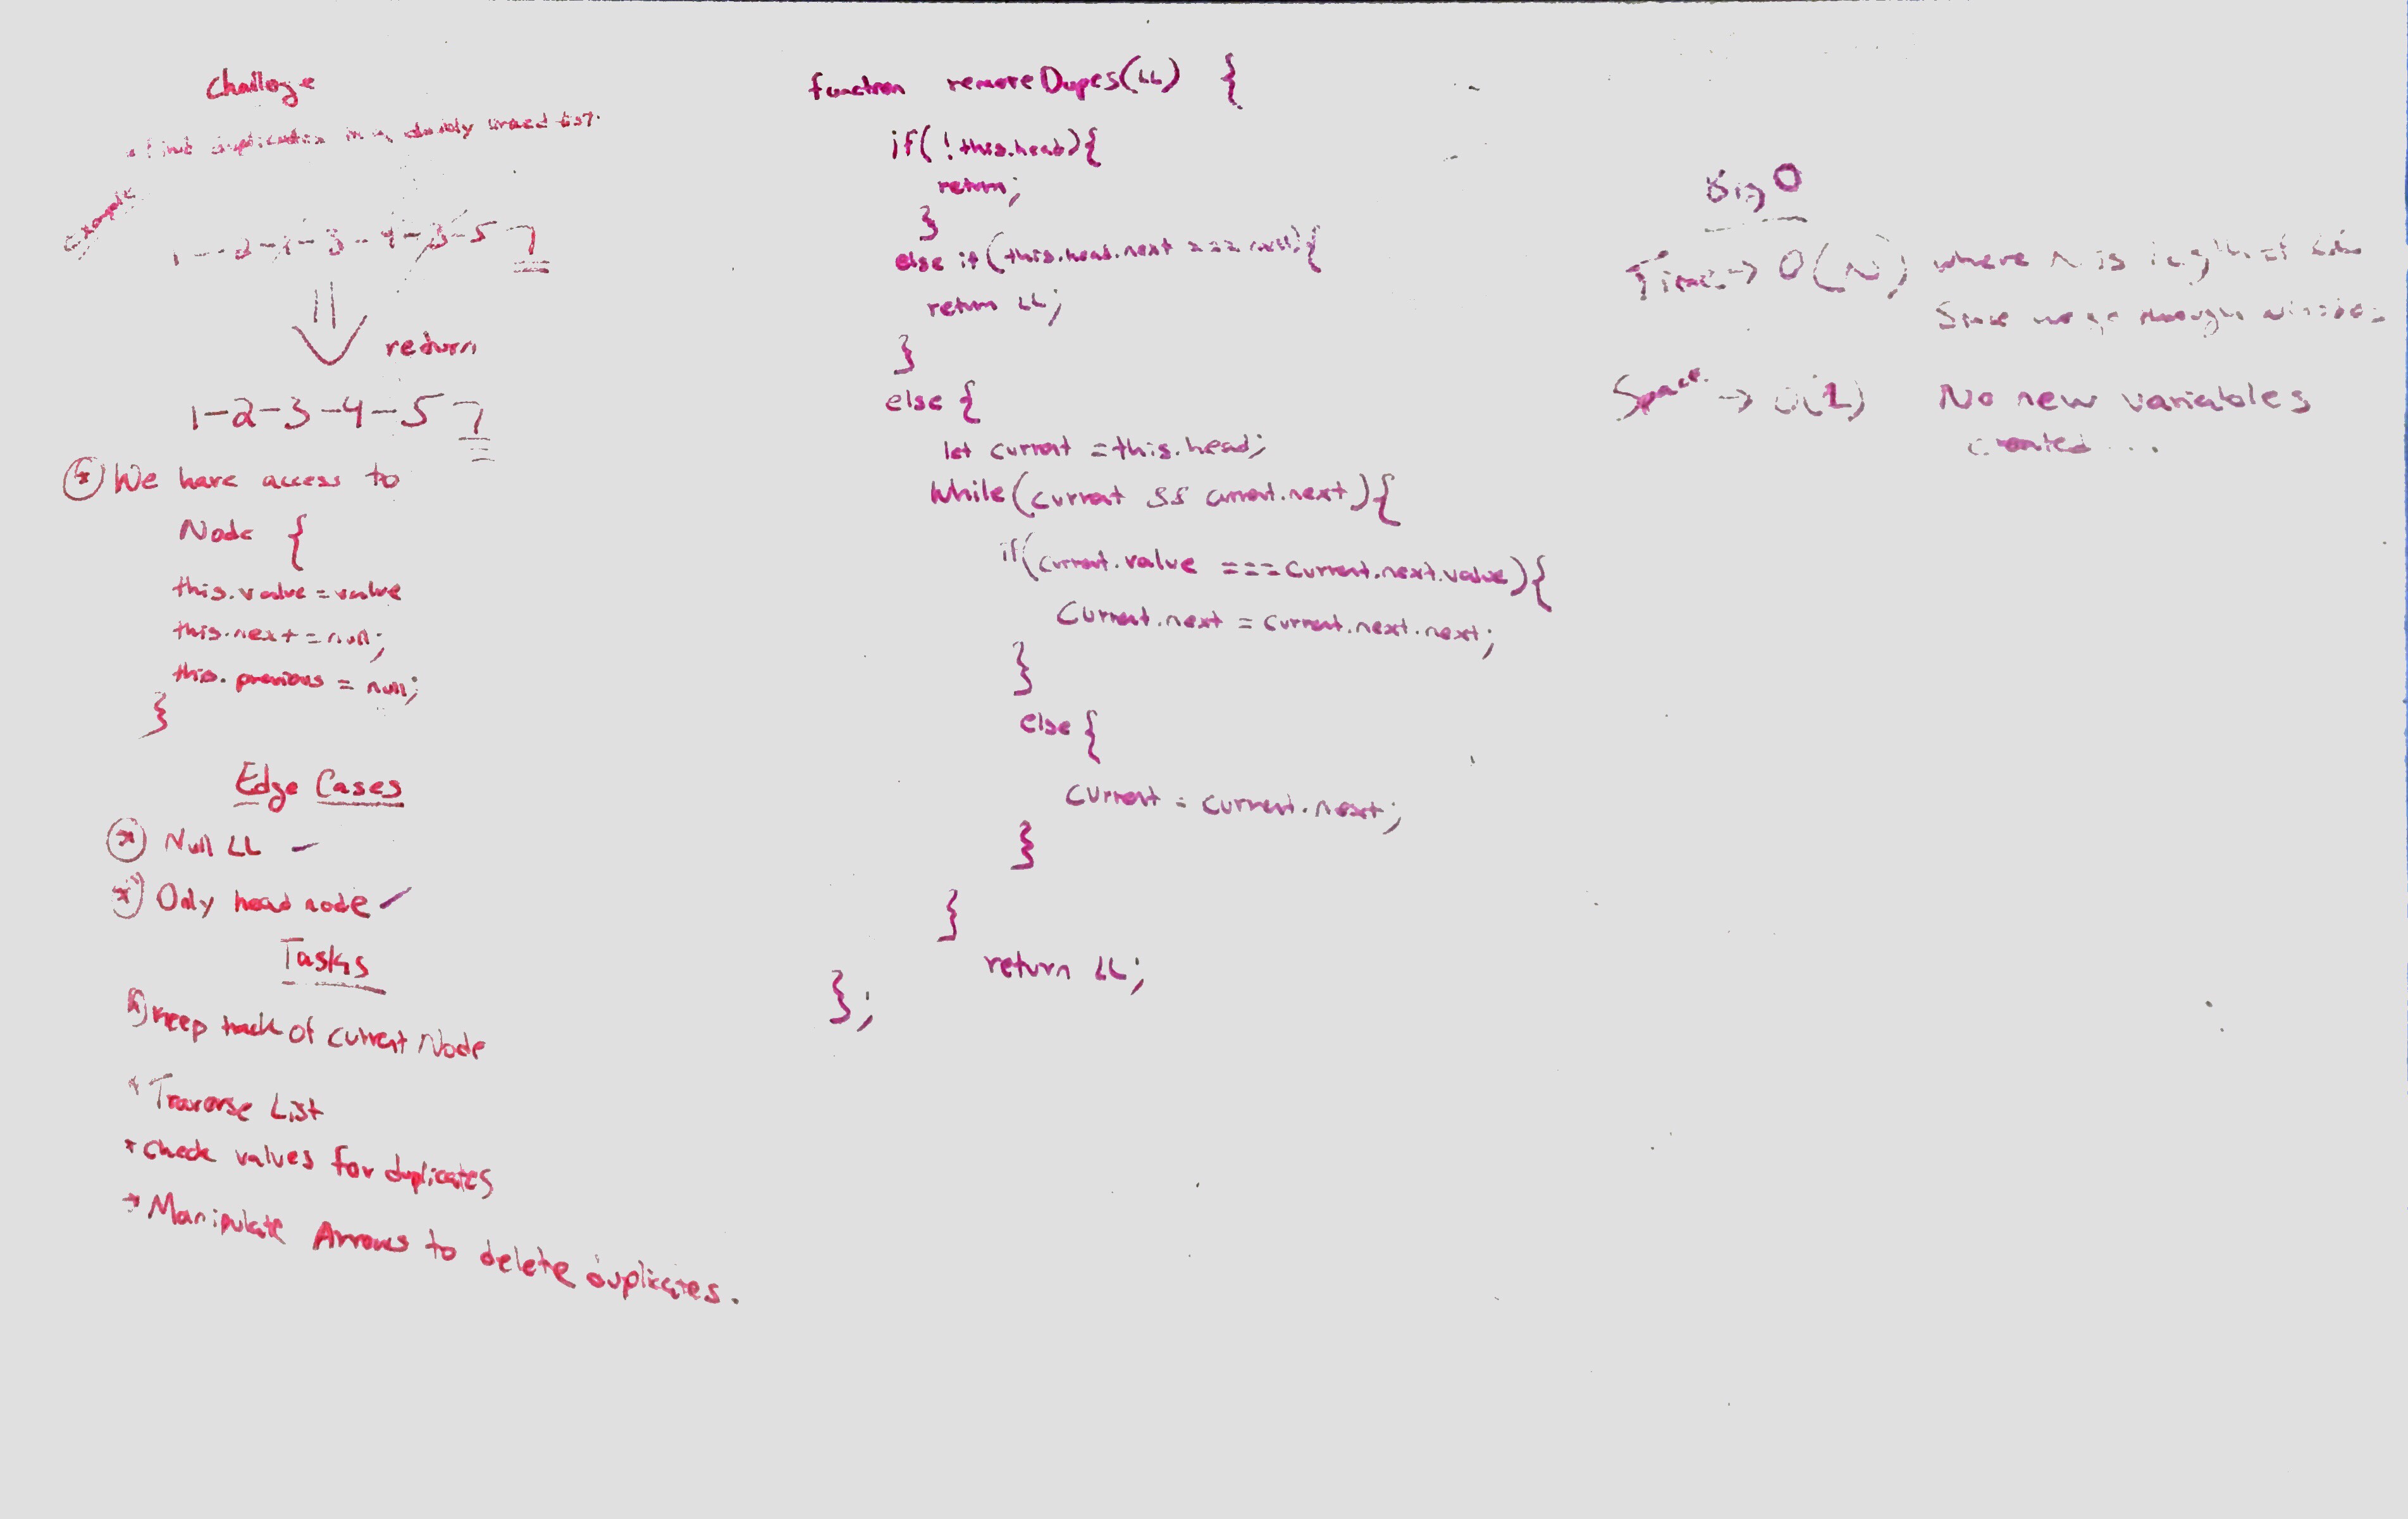 Challenge
• Find duplicates in a doubly linked list.
example
1-2-1-3-4-3-5
⇓ return
1-2-3-4-5
* We have access to
Node {
this.value = value
this.next = null;
this.previous = null;
}
Edge Cases
* Null LL -
* Only head node ✓
Tasks
*) Keep track of current Node
* Traverse List
* Check values for duplicates
* Manipulate Arrows to delete duplicates.
function removeDupes(LL) {
if( !this.head){
return;
}
else if (this.head.next === null){
return LL;
}
else {
let current = this.head;
while(current && current.next){
if(current.value === current.next.value){
current.next = current.next.next;
}
else {
current = current.next;
}
}
return LL;
};
Big O
Time → O(N) where N is length of
Since we go through
Space → O(1) No new variables
created ...